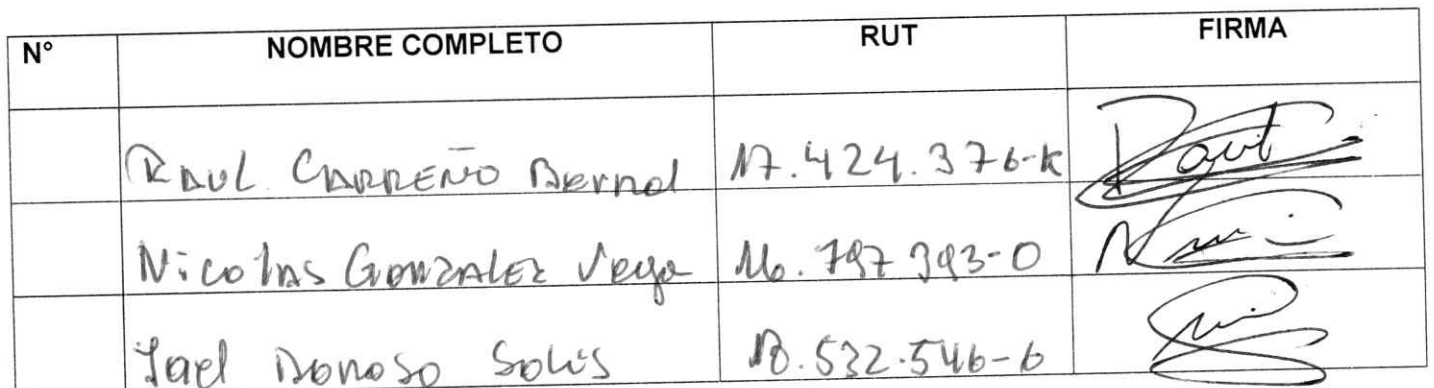 N° NOMBRE COMPLETO RUT FIRMA
RAUL CARREÑO Bernal 17.424.376-K Raul
Nicolas GONZALEZ Vega 16.797 393-0
Jael Donoso Solis 18.532.546-6